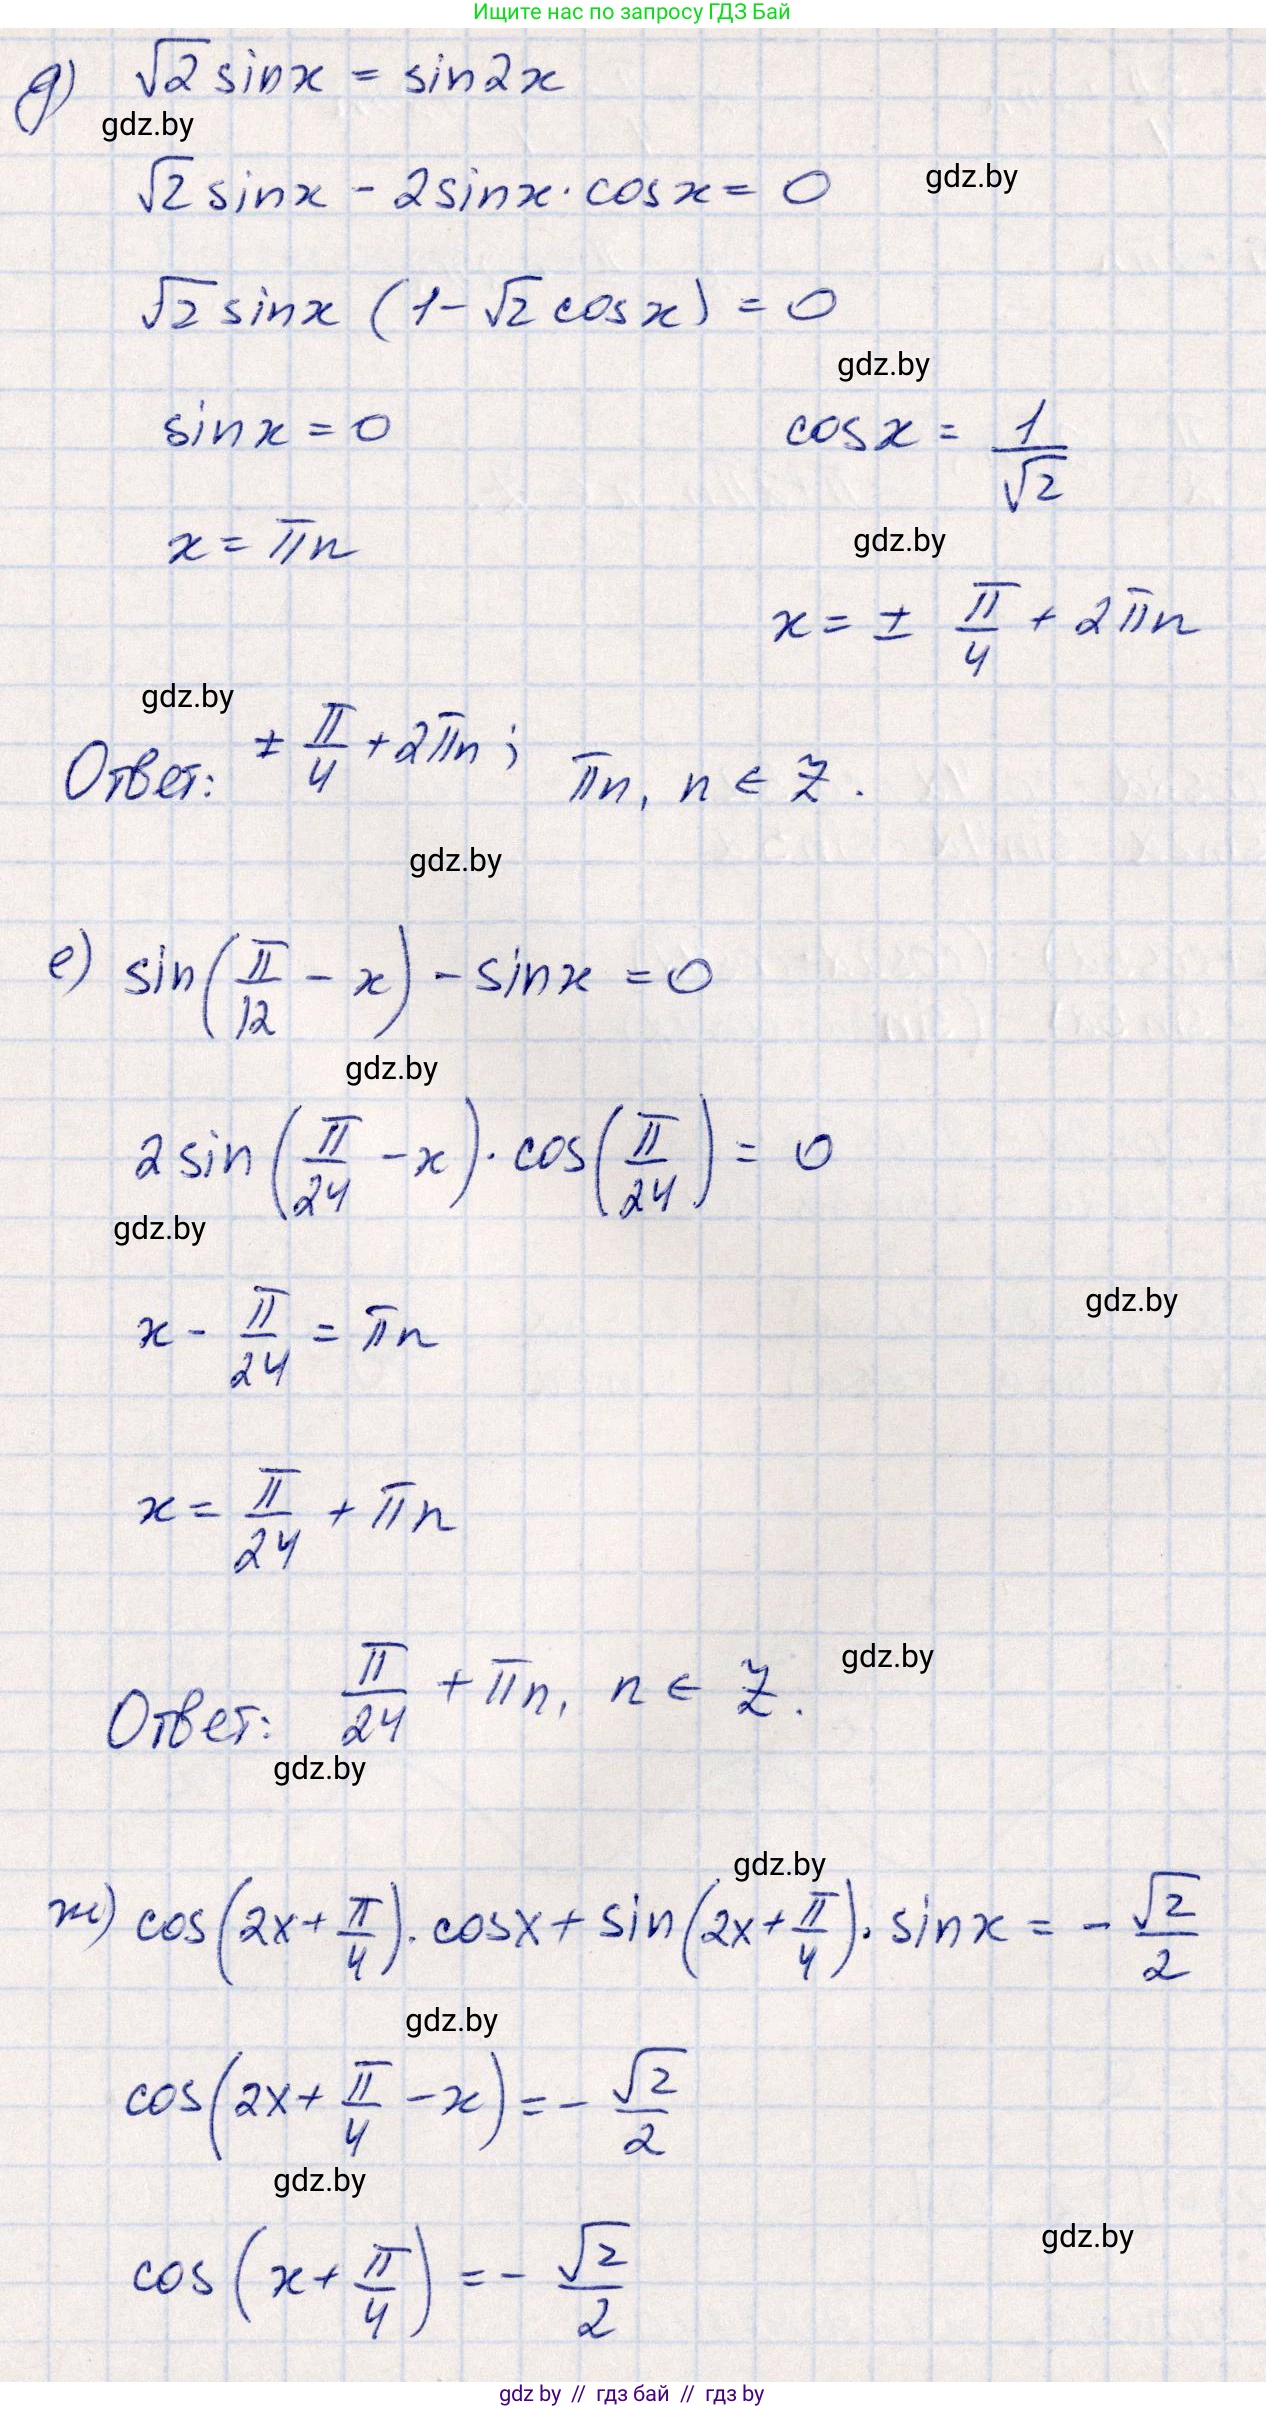 Ищите нас по запросу ГДЗ Бай
д) √2 sinx = sin2x
gdz.by
√2 sinx - 2sinx · cosx = 0
gdz.by
√2 sinx (1 - √2 cosx) = 0
gdz.by
sinx = 0    cosx = 1/√2
x = πn
gdz.by
x = ± π/4 + 2πn
gdz.by
Ответ: ± π/4 + 2πn; πn, n ∈ Z.
gdz.by
е) sin(π/12 - x) - sinx = 0
gdz.by
2sin(π/24 - x) · cos(π/24) = 0
gdz.by
gdz.by
x - π/24 = πn
x = π/24 + πn
gdz.by
Ответ: π/24 + πn, n ∈ Z.
gdz.by
gdz.by
ж) cos(2x + π/4) · cosx + sin(2x + π/4) · sinx = - √2/2
gdz.by
cos(2x + π/4 - x) = - √2/2
gdz.by
gdz.by
cos(x + π/4) = - √2/2
gdz by // гдз бай // гдз by